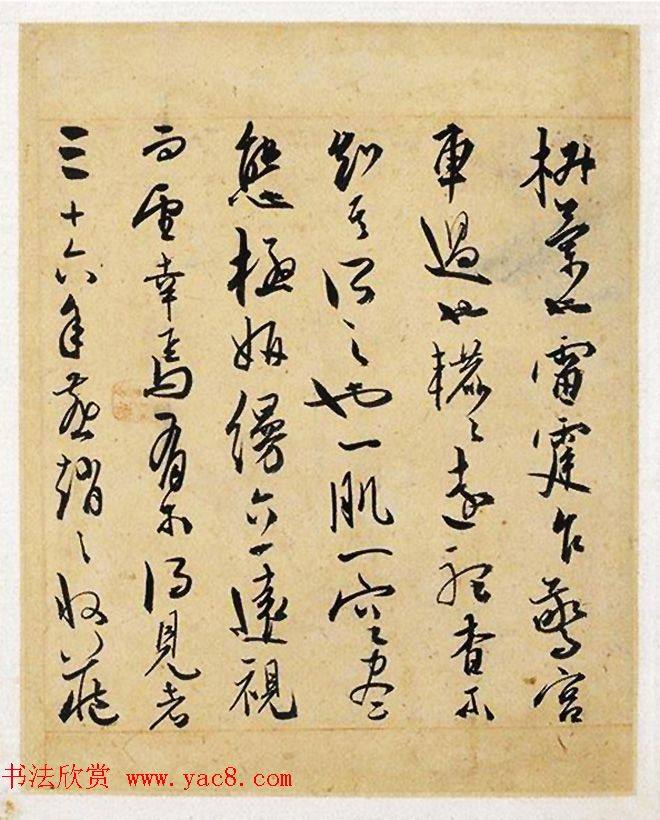 椒蘭也雷霆乍驚宮
車過也轆〻遠聽杳不
知其所之也一肌一容盡
態極妍縵立遠視
而望幸焉有不得見者
三十六年燕趙之收藏
书法欣赏 www.yac8.com